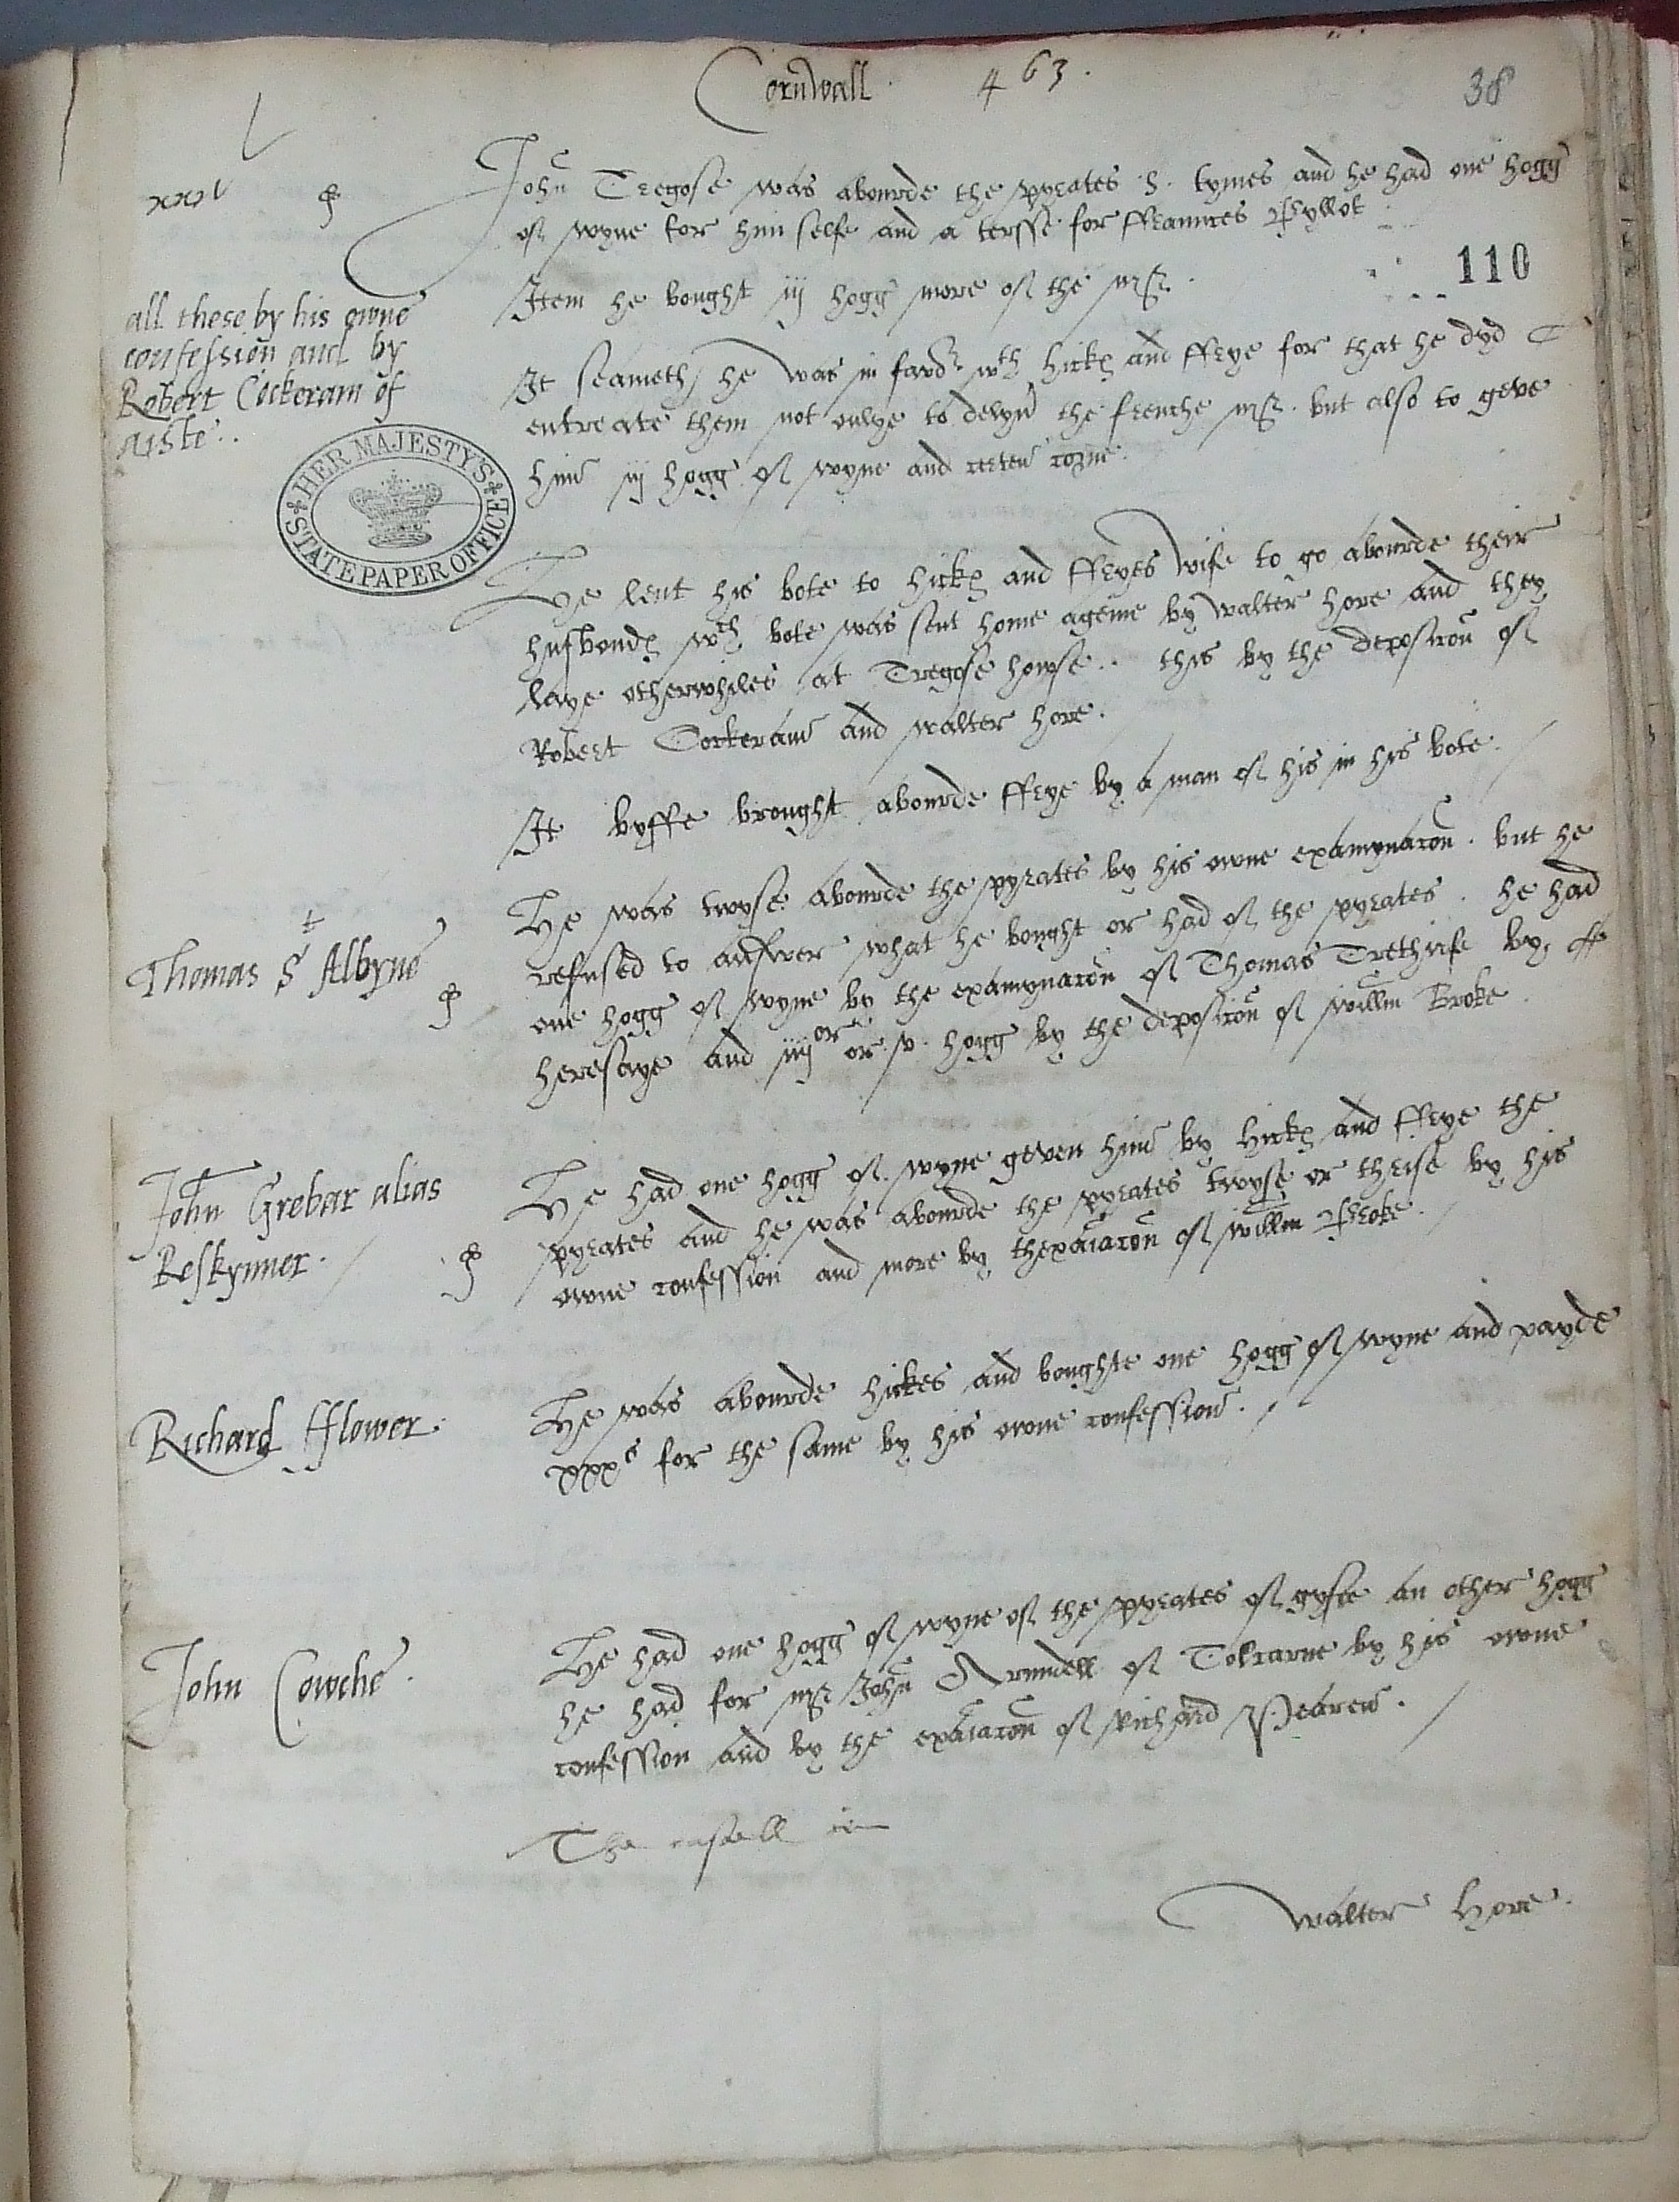 Cornwall. 463.
38
xxxl
John Tregose was abourde the pyrates .v. tymes and he had one hogg
of wyne for him selfe and a tersse for ffraunces
Item he bought iij hogg more of the mr.
110
all these by his owne
confession and by
Robert Cockeram of
It seameth he was in favor wth hickes and ffrye for that he dyd
entreate them not onlye to delyver the frenche mr. but also to geve
him iij hogg of wyne and certen corne.
HER MAJESTY'S
STATE PAPER OFFICE
He lent his bote to hickes and ffryes wife to go abourde their
husbondes wch bote was sent home ageine by walter hore and they
laye otherwhiles at Tregose howse. this by the deposicon of
Robert Cockeram and walter hore.
It byffe brought abourde ffrye by a man of his in his bote.
Thomas St Albyne
He was twyse abourde the pyrates by his owne examynacon. but he
refused to answer what he bought or had of the pyrates. he had
one hogg of wyne by the examynacon of Thomas Trethurfe by
heresaye and iiijor or v. hogg by the deposicon of willm Broke.
John Grebar alias
Reskymer.
He had one hogg of wyne geven him by hickes and ffrye the
pyrates and he was abourde the pyrates twyse or thrise by his
owne confession and more by thexaiacon of willm Broke.
Richard fflower.
He was abourde hickes and boughte one hogg of wyne and payde
xxxs for the same by his owne confession.
John Cowche.
He had one hogg of wyne of the pyrates of gyfte an other hogg
he had for mr John Arundell of Tolvarne by his owne
confession and by the exaiacon of Richard
The
walter hore.